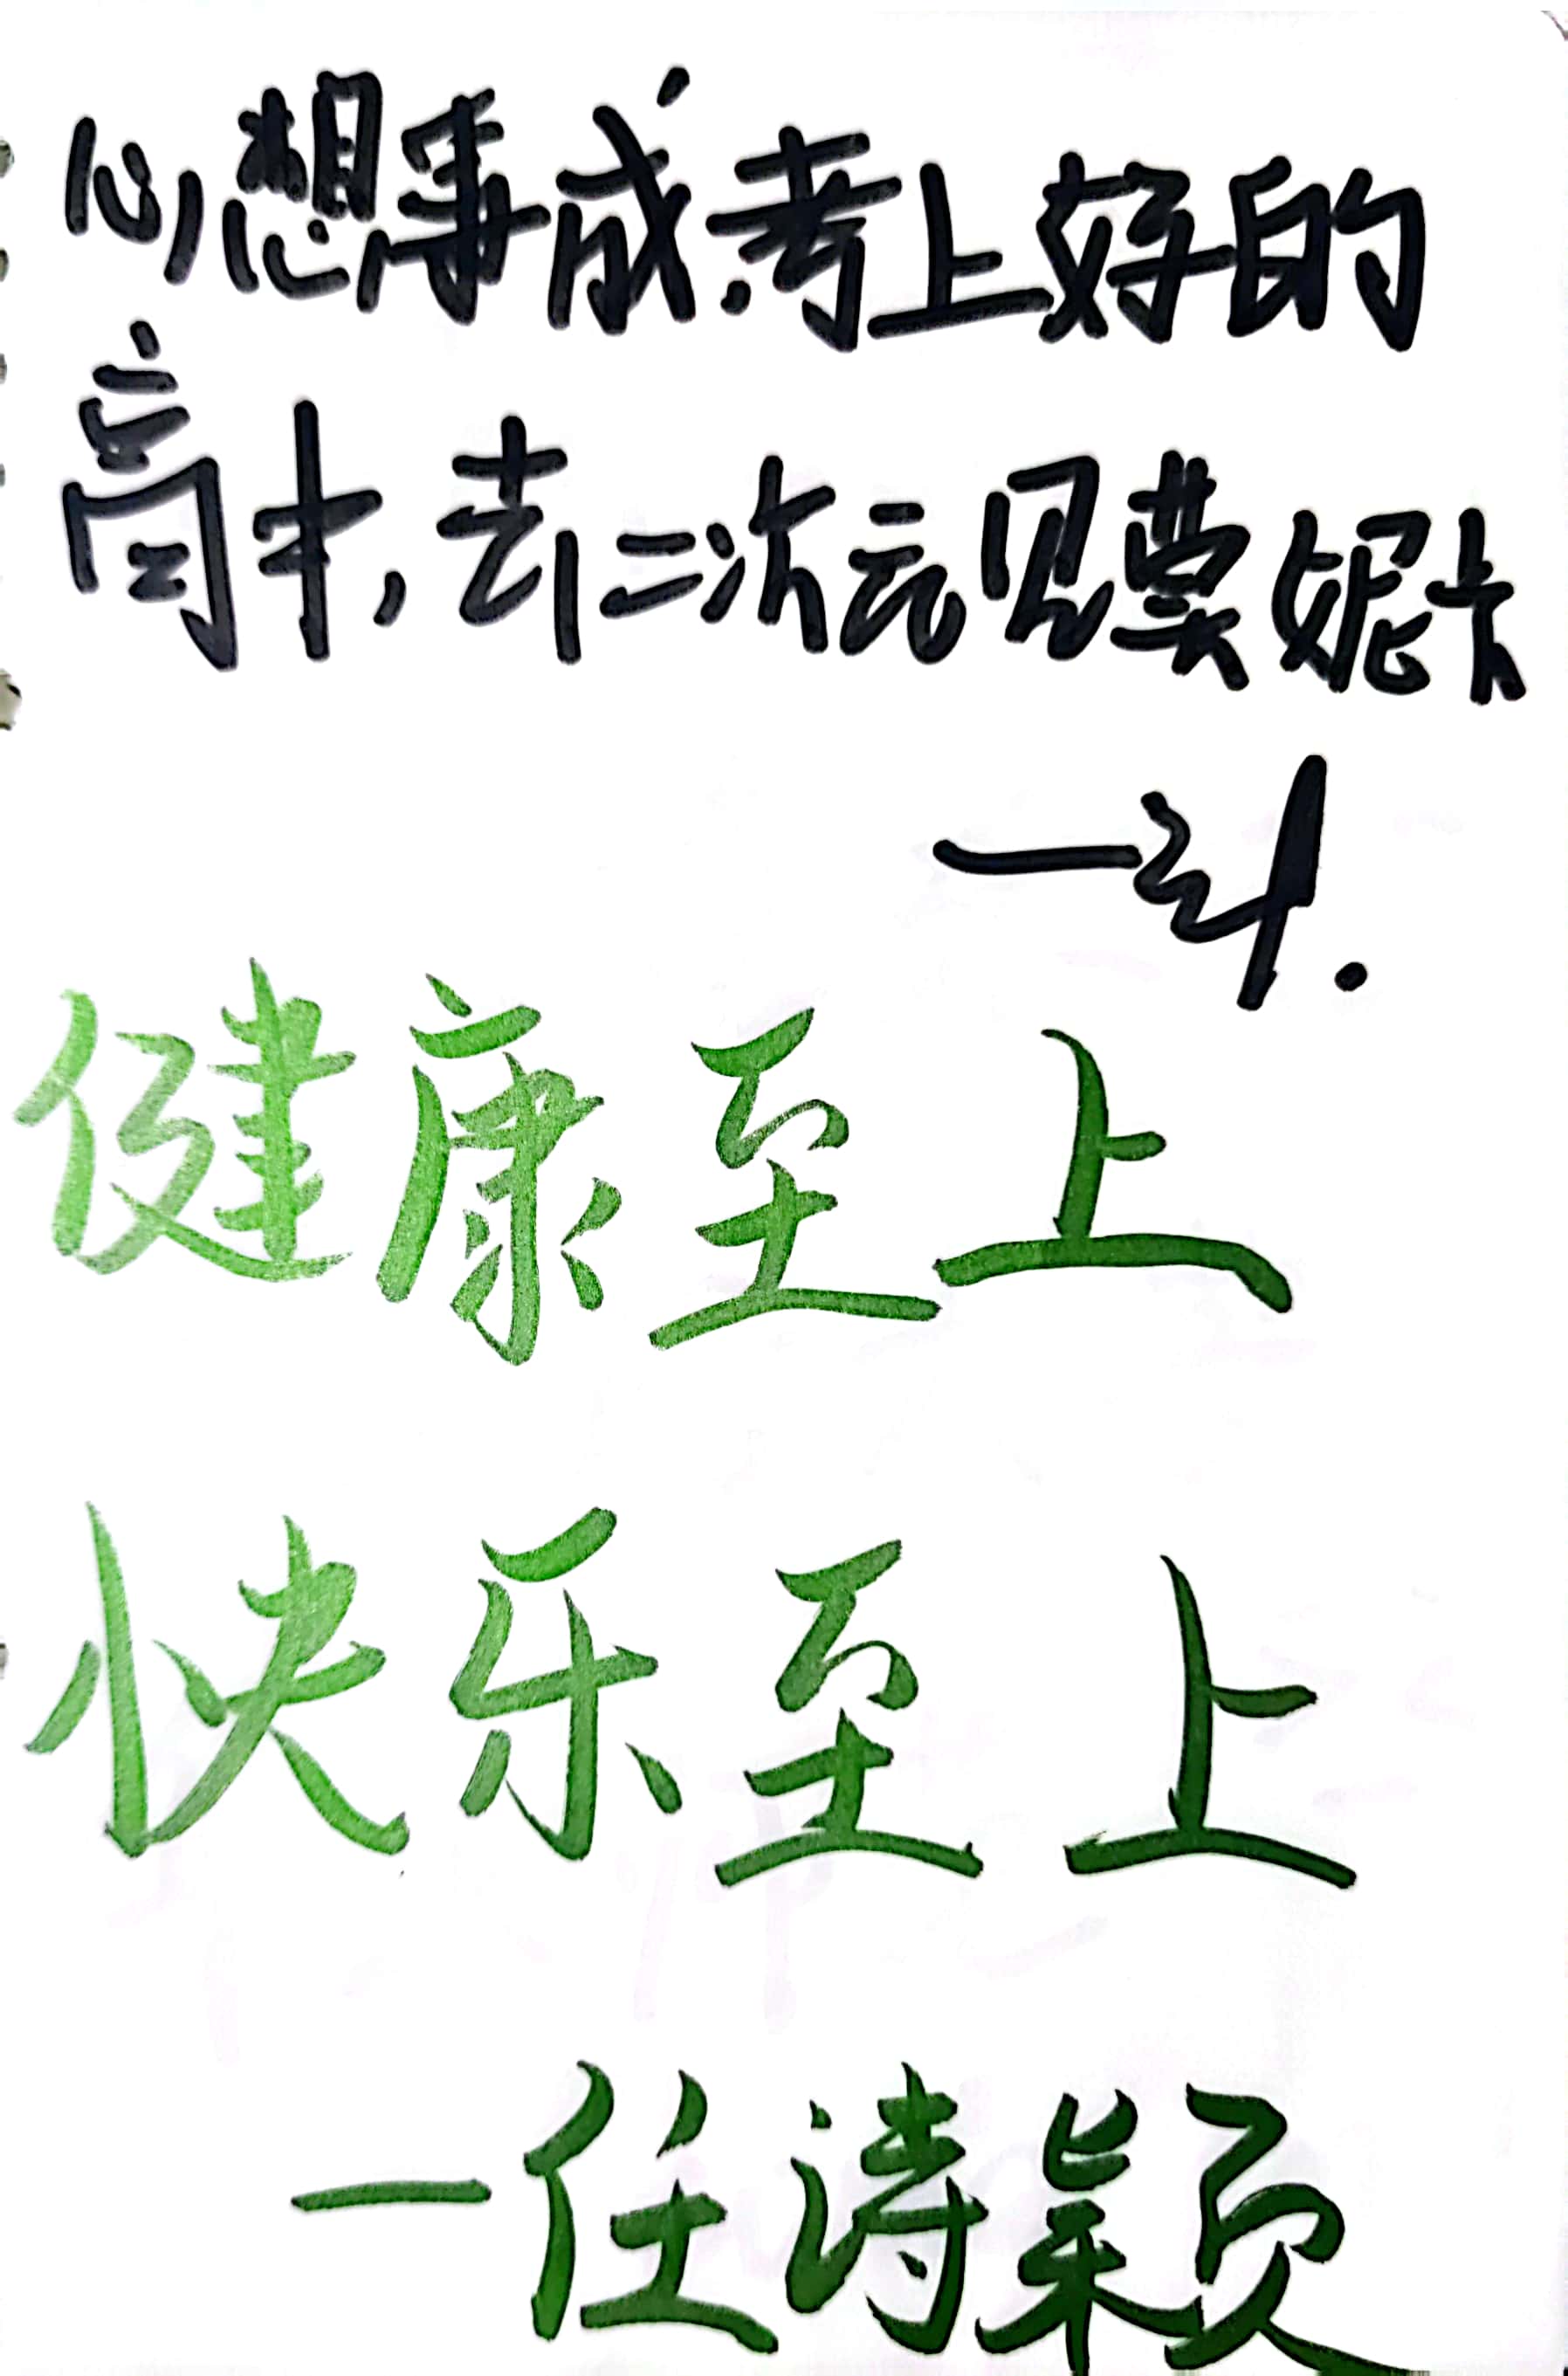 心想事成,考上好的
高中,去二次元见莫妮卡
健康至上
快乐至上
—任诗颖